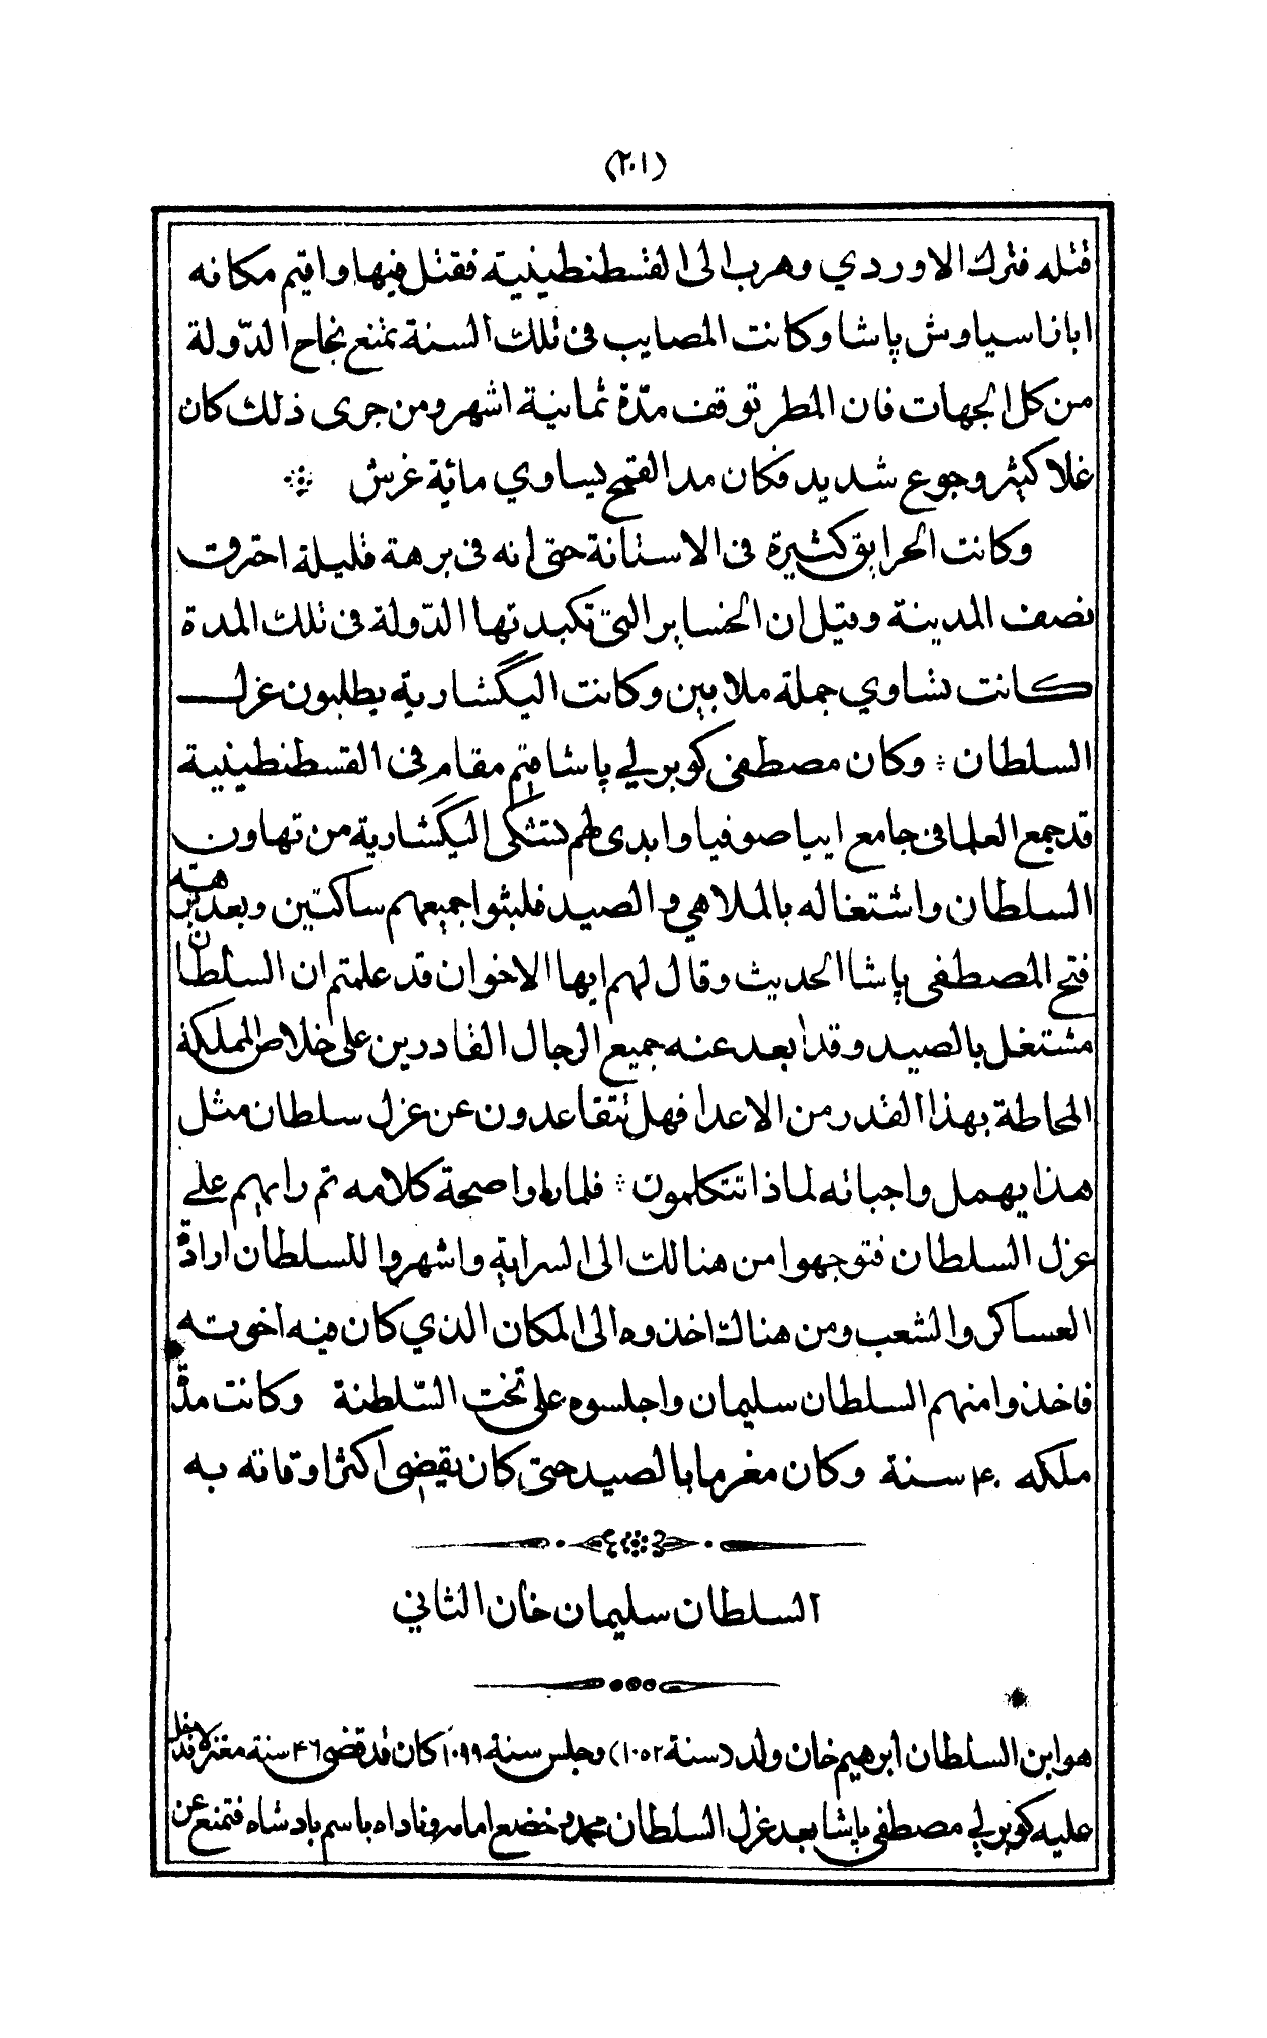 (٢٠١)
قتله فترك الاوردي وهرب الى القسطنطينية فقتل فيها واقيم مكانه
ابازا سياوش پاشا وكانت المصايب فى تلك السنة تمنع نجاح الدّولة
من كل الجهات فان المطر توقف مدّة ثمانية اشهر ومن جرى ذلك كان
غلا كثير وجوع شديد فكان مد القمح يساوي مائة غرش ۞
وكانت الحرايق كثيرة فى الاستانة حتى انه فى برهة قليلة احترقت
نصف المدينة وقيل ان الخساير التى تكبدتها الدّولة فى تلك المدة
كانت تساوي جملة ملايين وكانت اليكَشارية يطلبون عزل
السلطان ۞ وكان مصطفى كوبرلي پاشا قيم مقام فى القسطنطينية
قد جمع العلما فى جامع ايا صوفيا وابدى لهم تشكى اليكَشارية من تهاون
السلطان واشتغاله بالملاهي والصيد فلبثوا جميعهم ساكتين وبعد برهة
فتح المصطفى پاشا الحديث وقال لهم ايها الاخوان قد علمتم ان السلطان
مشتغل بالصيد وقد ابعد عنه جميع الرجال القادرين على خلاص المملكة
المحاطة بهذا القدر من الاعدا فهل تتقاعدون عن عزل سلطان مثل
هذا يهمل واجباته لماذا تتكلمون ۞ فلما راوا صحة كلامه تم رايهم على
عزل السلطان فتوجهوا من هنالك الى السراية واشهروا للسلطان ارادة
العساكر والشعب ومن هناك اخذوه الى المكان الذي كان فيه اخوته
فاخذوا منهم السلطان سليمان واجلسوه على تخت السّلطنة وكانت مدّة
ملكه ٤٠ سنة وكان مغرما بالصيد حتى كان يقضى اكثر اوقاته به
السلطان سليمان خان الثاني
هو ابن السلطان ابرهيم خان ولد (سنة ١٠٥٢) وجلس سنة ١٠٩٩ كان قد قضى ٤٦ سنة معتزلا فدخل
عليه كوبرلي مصطفى پاشا بعد عزل السلطان محمد وخضع امامه وناداه باسم پادشاه فتمنع عن